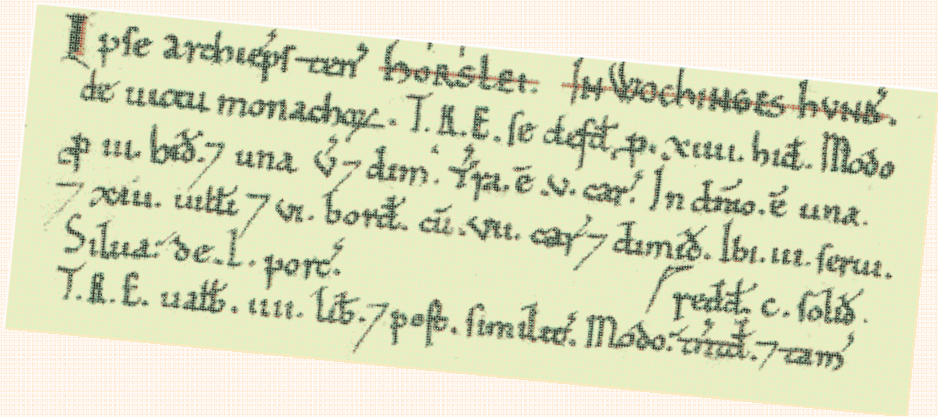 Ipse archieps ten' HORSLEI. IN WOCHINGES HVND'.
de uictu monachoꝝ. T.R.E. se defđ. p. xiiii. hiđ. Modo
p iii. hiđ. ⁊ una v̓ ⁊ dim̓. Tra. ē .v. car̓. In dnio. ē una.
⁊ xiii. uitti ⁊ vi. borđ. cū .vii. car̓ ⁊ dimiđ. Ibi. iii. serui.
Silua. de. L. porc̓.
redđ. c. soliđ.
T.R.E. ualb. iiii. lib. ⁊ post. similit̓. Modo. ⁊ tam̓